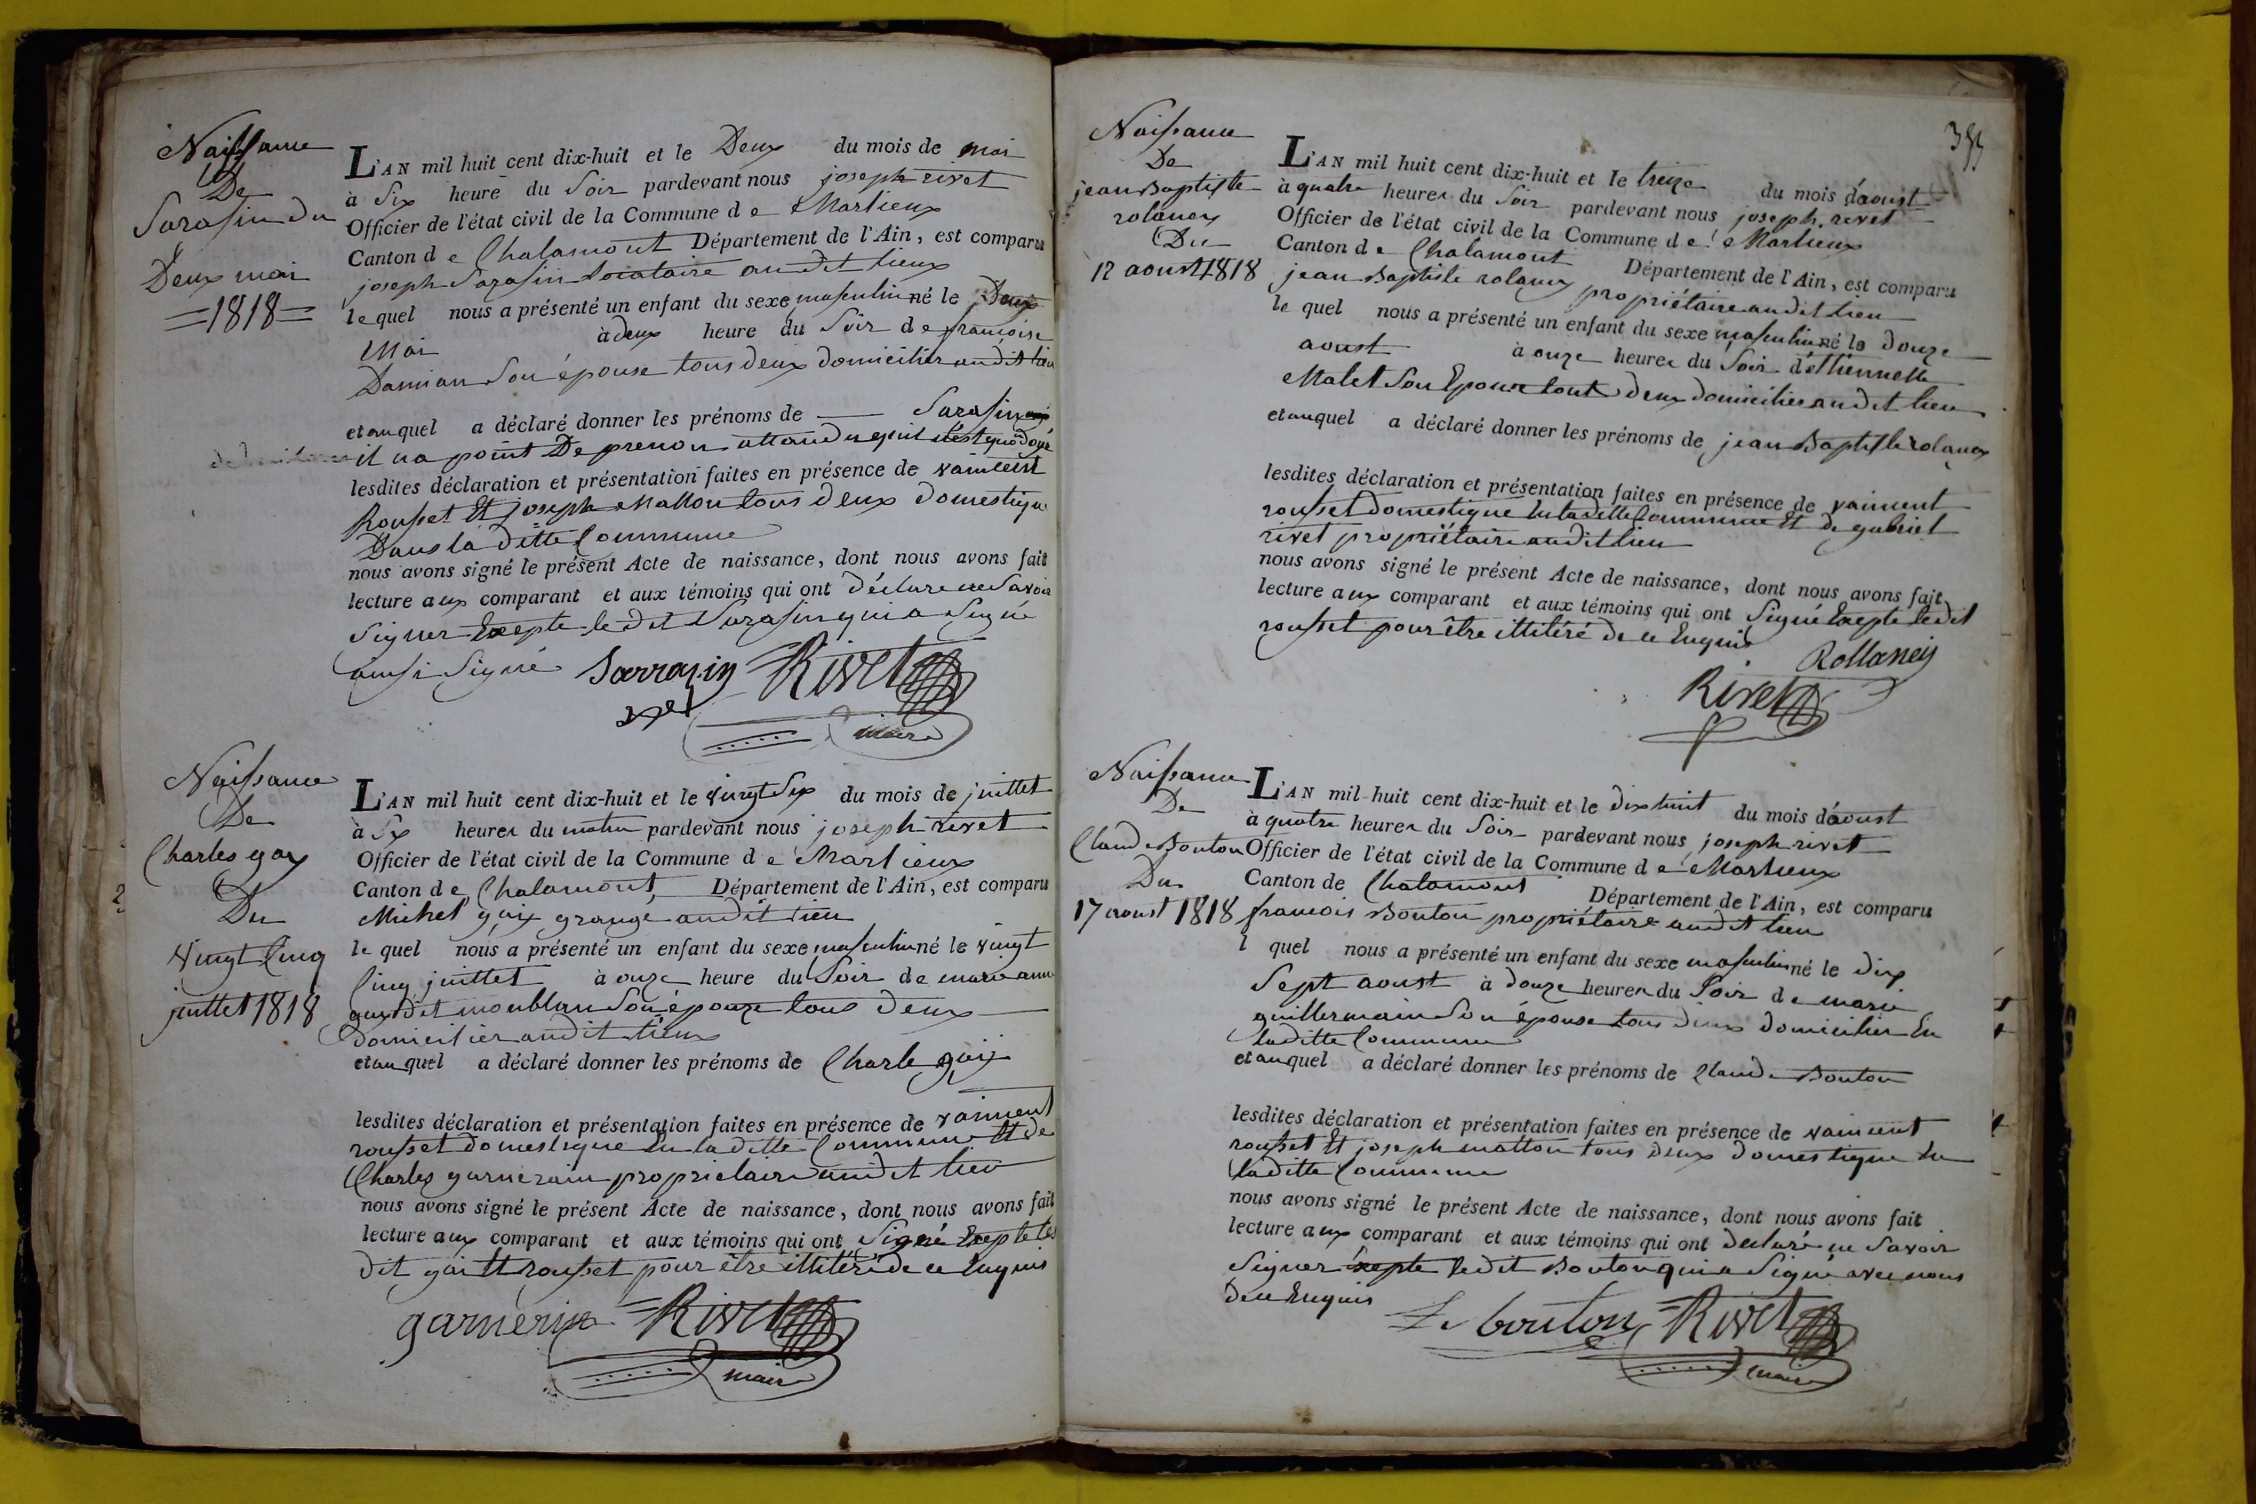 Naissance
De
Sarasin du
Deux mai
=1818=
L'AN mil huit cent dix-huit et le Deux du mois de mai
à Six heure du Soir pardevant nous joseph rivet
Officier de l'état civil de la Commune de Marlieux
Canton de Chalamont Département de l'Ain, est comparu
joseph Sarasin locataire audit lieux
lequel nous a présenté un enfant du sexe masculin né le Deux
Mai à deux heure du Soir de françoise
Damian Son épouse tous deux domicilier audit lieu
et auquel a déclaré donner les prénoms de Sarasin
il na point De prenon attandu quil n'est
lesdites déclaration et présentation faites en présence de vaincent
Rousset Et joseph Matton tous deux domestique
Dans la ditte Commune
nous avons signé le présent Acte de naissance, dont nous avons fait
lecture aux comparant et aux témoins qui ont déclare ne Savoir
Signer Exepte le dit Sarasin qui a Signé
ausi Signé Sarrazin Rivet
maire
Naissance
De
Charles gay
Du
vingt Cinq
juillet 1818
L'AN mil huit cent dix-huit et le vingt Six du mois de juillet
à Six heures du matin pardevant nous joseph rivet
Officier de l'état civil de la Commune de Marlieux
Canton de Chalamont Département de l'Ain, est comparu
Michel gaix grangé audit lieu
lequel nous a présenté un enfant du sexe masculin né le vingt
Cinq juillet à onze heure du Soir de marie anne
moublan Son épouze tous deux
domicilier audit lieux
et auquel a déclaré donner les prénoms de Charle gaix
lesdites déclaration et présentation faites en présence de vaincent
rousset domestique En la ditte Commune Et de
Charles garnerain proprietaire audit lieu
nous avons signé le présent Acte de naissance, dont nous avons fait
lecture aux comparant et aux témoins qui ont Signé Exepte les
dit gai Et rousset pour être illitéré de ce Enquis
garnerin Rivet
maire
353
Naissance
De
jean Baptiste
rolaney
Du
12 aoust 1818
L'AN mil huit cent dix-huit et le treize du mois d'aoust
à quatre heures du Soir pardevant nous joseph rivet
Officier de l'état civil de la Commune de Marlieux
Canton de Chalamont Département de l'Ain, est comparu
jean Baptiste rolaney propriétaire audit lieu
lequel nous a présenté un enfant du sexe masculin né le douze
aoust à onze heures du Soir d'Ettiennette
Malet Son Epouse tout deux domicilier audit lieu
et auquel a déclaré donner les prénoms de jean Baptiste rolaney
lesdites déclaration et présentation faites en présence de vaincent
rousset domestique En la ditte Commune Et de gabriel
rivet propriétaire audit lieu
nous avons signé le présent Acte de naissance, dont nous avons fait
lecture aux comparant et aux témoins qui ont Signé Exepte le dit
rousset pour être illitéré de ce Enquis
Rollaney
Rivet
Naissance
De
Claude Bouton
Du
17 aoust 1818
L'AN mil huit cent dix-huit et le dix huit du mois d'aoust
à quatre heures du Soir pardevant nous joseph rivet
Officier de l'état civil de la Commune de Marlieux
Canton de Chalamont Département de l'Ain, est comparu
francois Bouton propriétaire audit lieu
l quel nous a présenté un enfant du sexe masculin né le dix
Sept aoust à douze heures du Soir de marie
guillermain Son épouse tous deux domicilier En
laditte Commune
et auquel a déclaré donner les prénoms de Claude Bouton
lesdites déclaration et présentation faites en présence de vaincent
rousset Et joseph matton tous deux domestique En
laditte Commune
nous avons signé le présent Acte de naissance, dont nous avons fait
lecture aux comparant et aux témoins qui ont declaré ne Savoir
Signer Exepte ledit Bouton qui a Signé avec nous
de ce Enquis bouton Rivet
maire